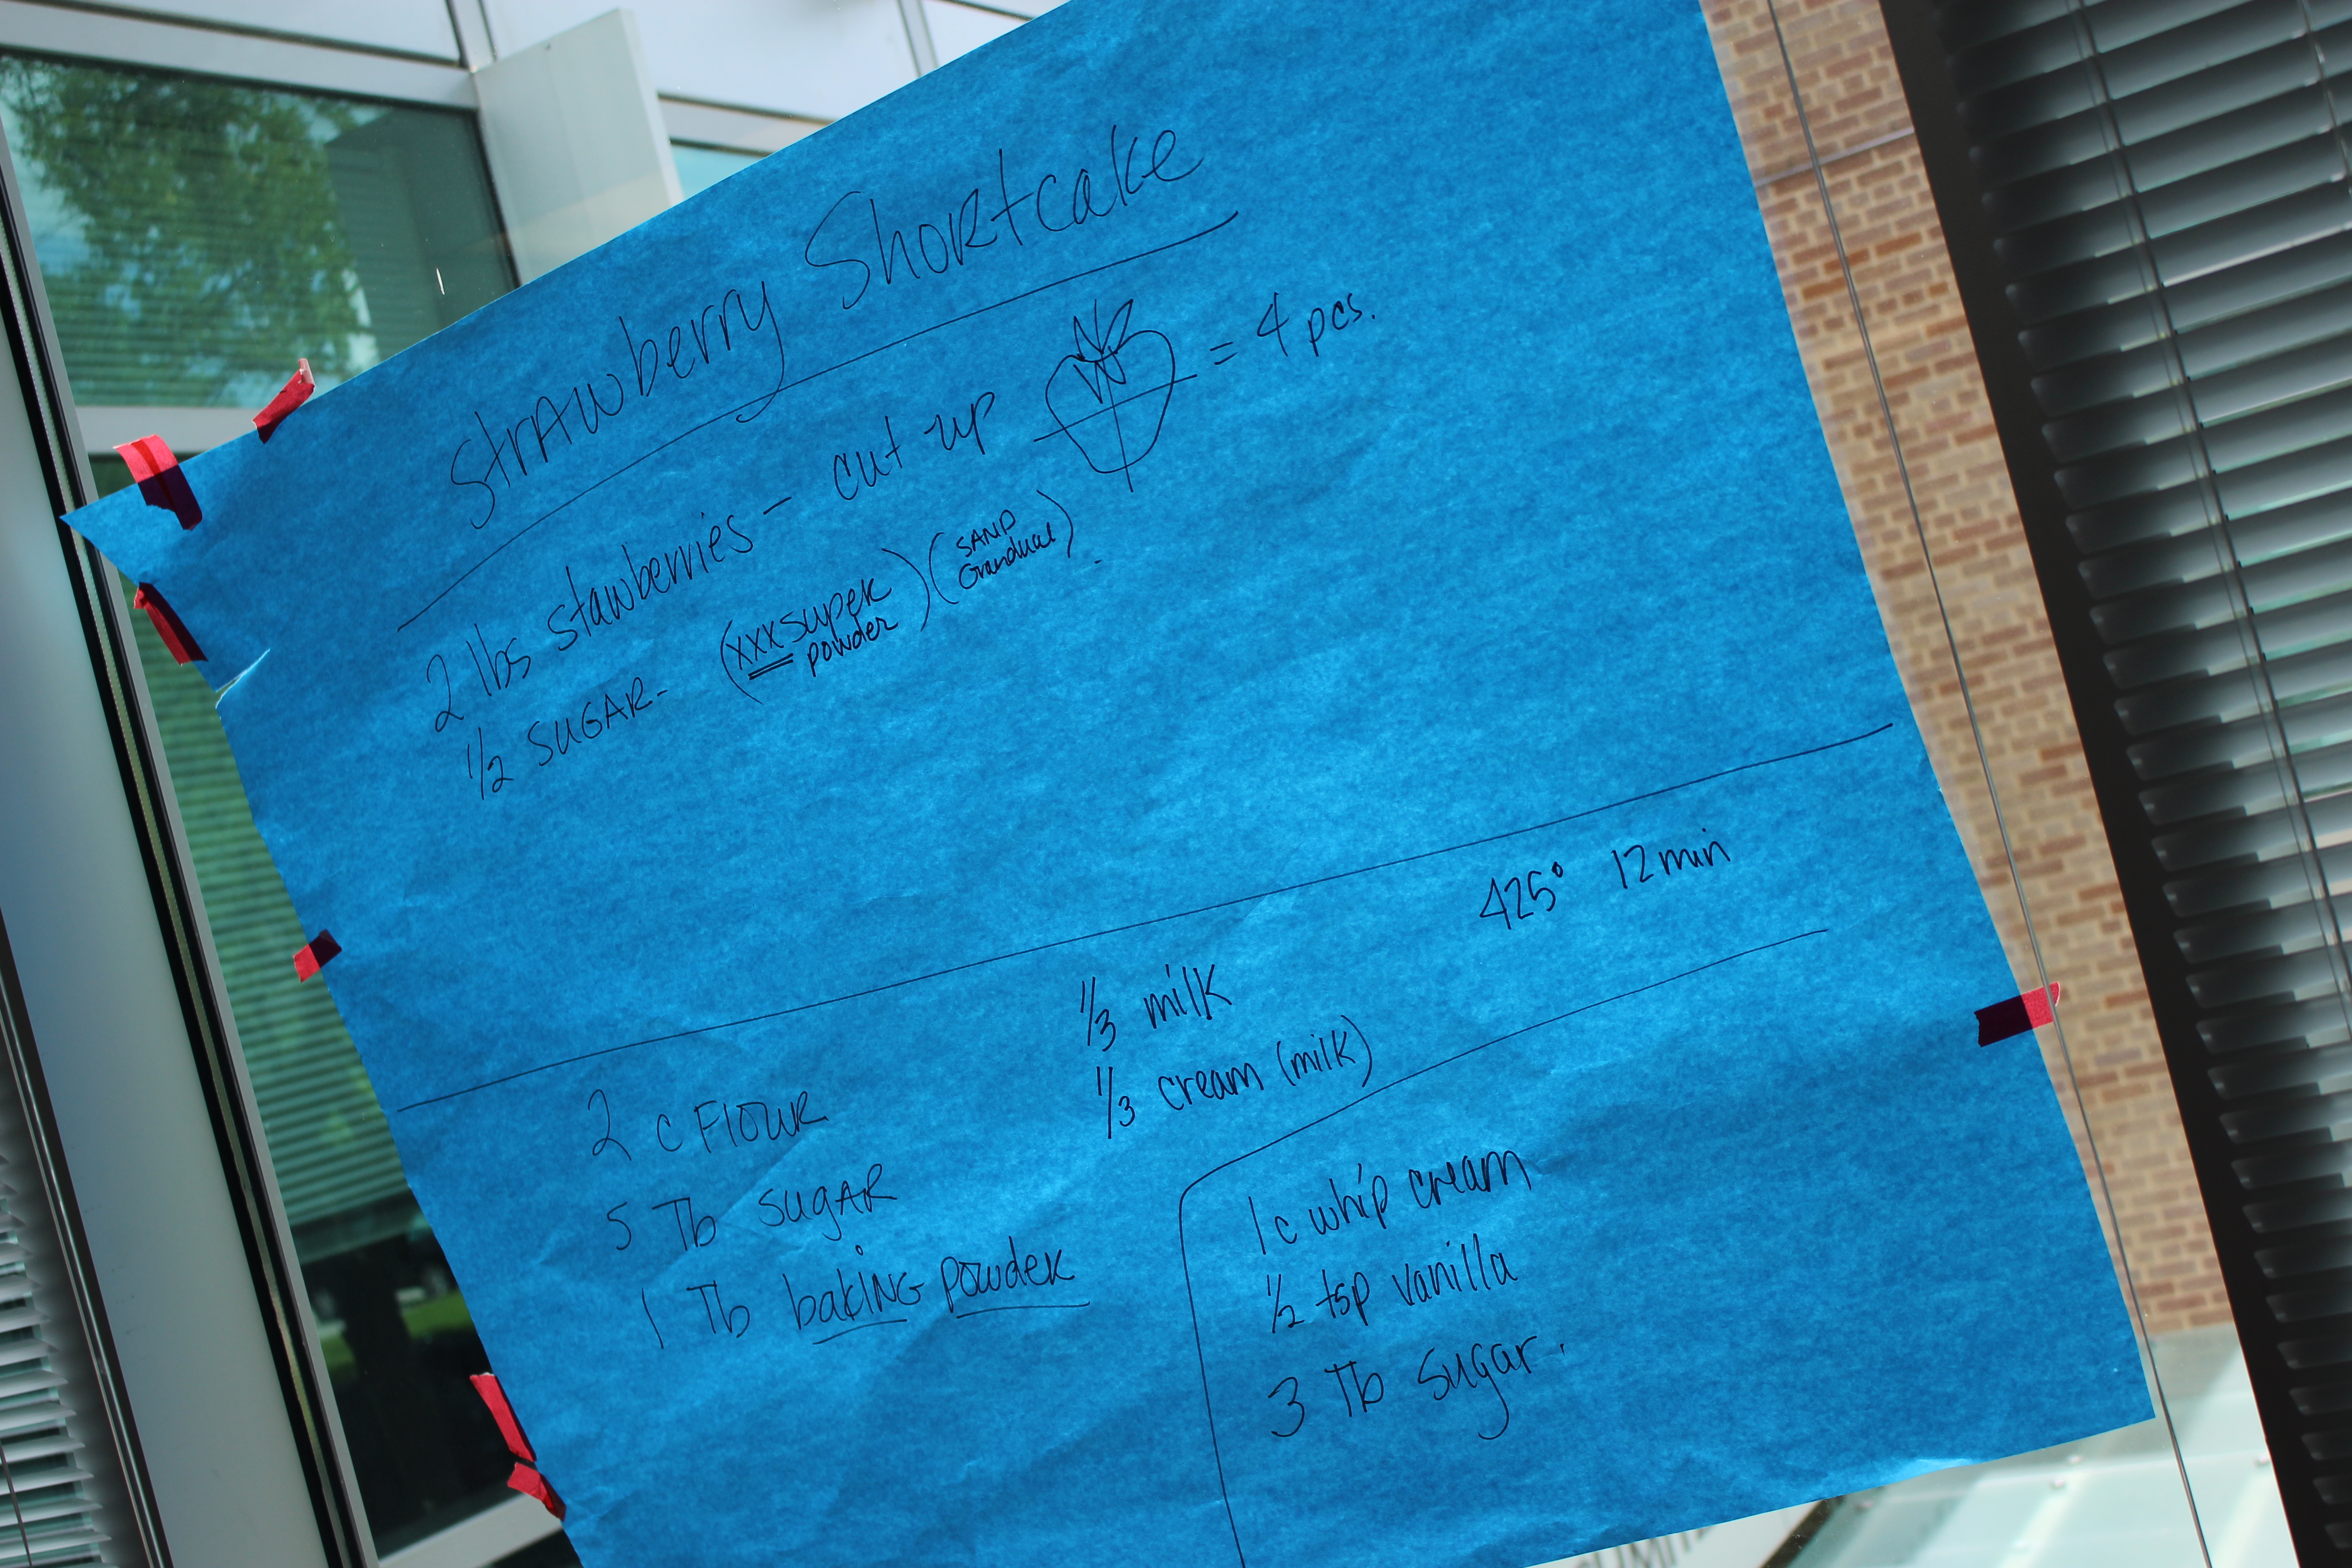 Strawberry Shortcake
2 lbs stawberries - cut up = 4 pcs.
1/2 SUGAR- (xxx super powder) (SAND Grandual).
425° 12 min
1/3 milk
1/3 cream (milk)
2 c Flour
5 Tb sugar
1 Tb baking powder
1 c whip cream
1/2 tsp vanilla
3 Tb sugar.